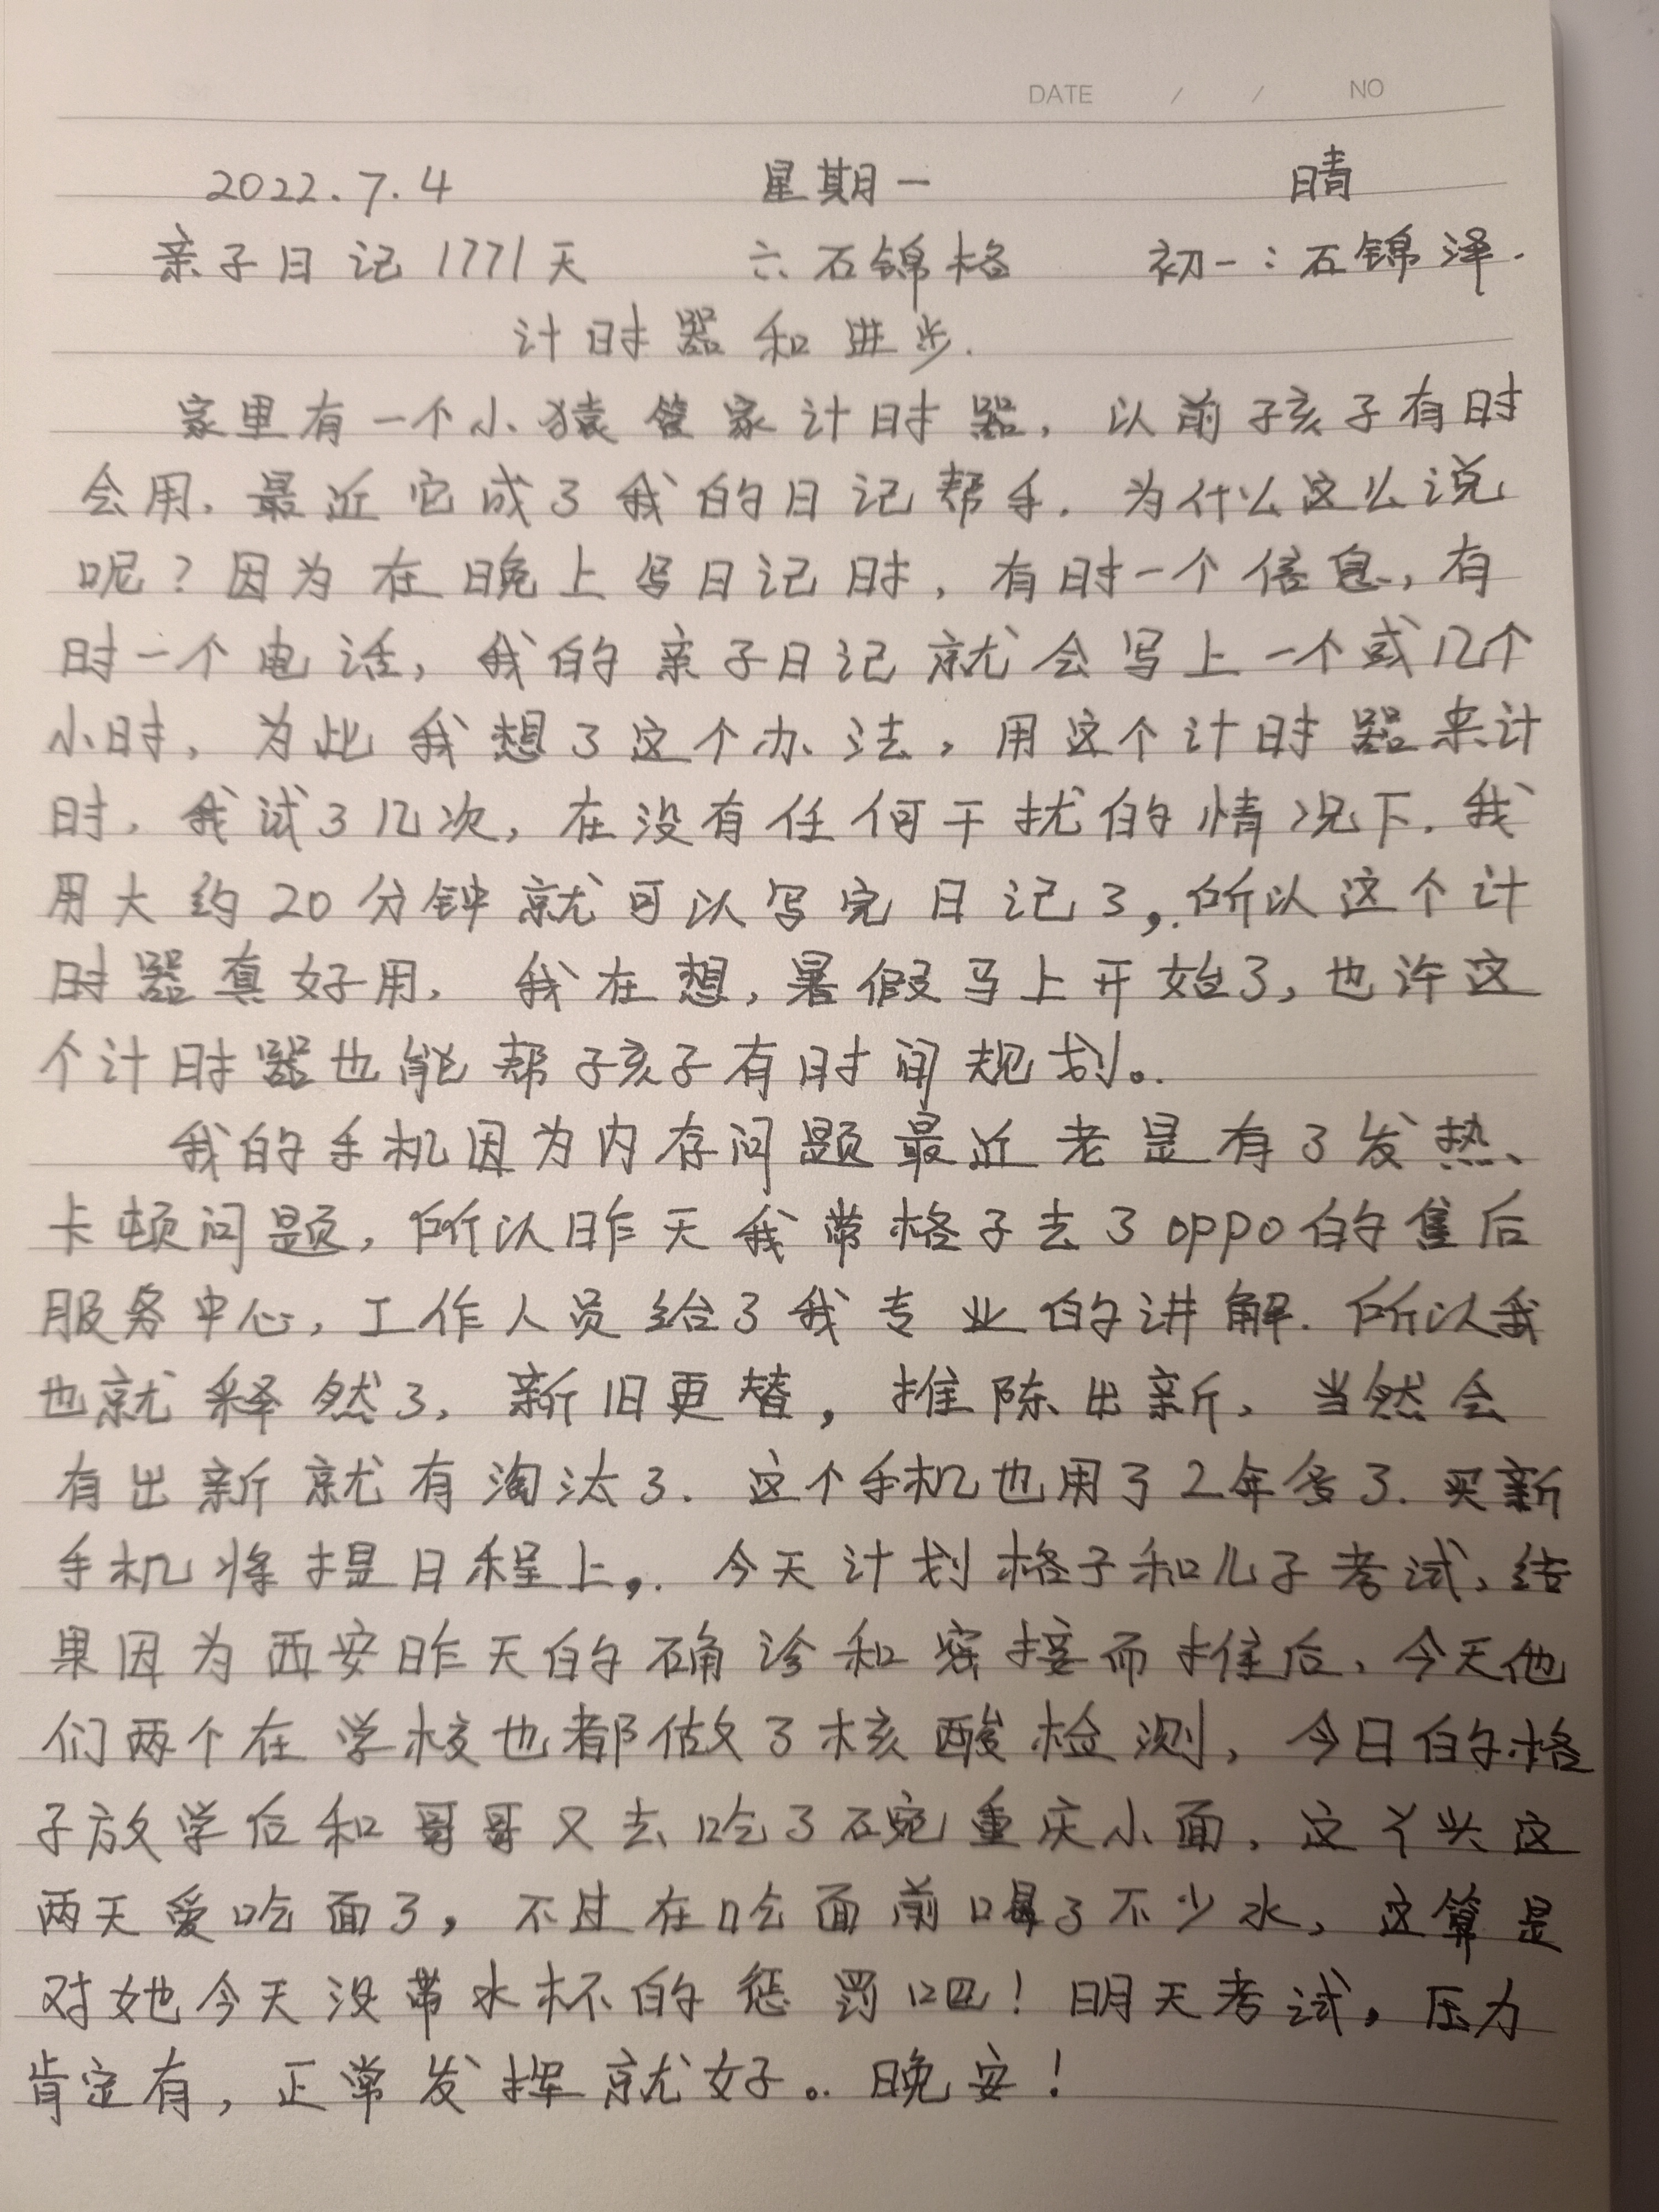 DATE / / NO
2022.7.4 星期一 晴
亲子日记1771天 六石锦格 初一：石锦泽.
计时器和进步.
家里有一个小猿管家计时器，以前孩子有时
会用.最近它成了我的日记帮手.为什么这么说
呢？因为在晚上写日记时，有时一个信息，有
时一个电话，我的亲子日记就会写上一个或几个
小时，为此我想了这个办法，用这个计时器来计
时，我试了几次，在没有任何干扰的情况下.我
用大约20分钟就可以写完日记了，.所以这个计
时器真好用. 我在想，暑假马上开始了，也许这
个计时器也能帮孩子有时间规划。.
我的手机因为内存问题最近老是有了发热、
卡顿问题，所以昨天我带格子去了oppo的售后
服务中心，工作人员给了我专业的讲解.所以我
也就释然了，新旧更替，推陈出新，当然会
有出新就有淘汰了.这个手机也用了2年多了.买新
手机将提日程上，.今天计划格子和儿子考试，结
果因为西安昨天的确诊和密接而推后，今天他
们两个在学校也都做了核酸检测，今日的格
子放学后和哥哥又去吃了碗重庆小面，这丫头这
两天爱吃面了，不过在吃面前喝了不少水，这算是
对她今天没带水杯的惩罚吧！明天考试，压力
肯定有，正常发挥就好。.晚安！